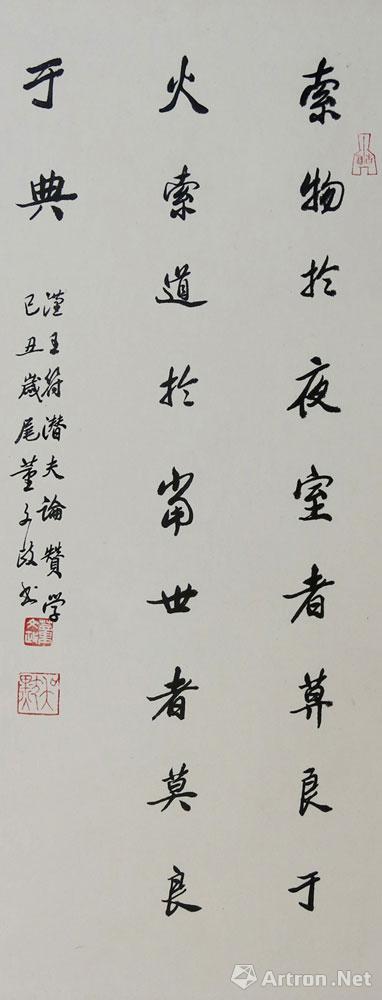 索物於夜室者莫良于
火索道於當世者莫良
于典
漢王符潛夫論贊学
己丑歲尾董文政书
Artron.Net